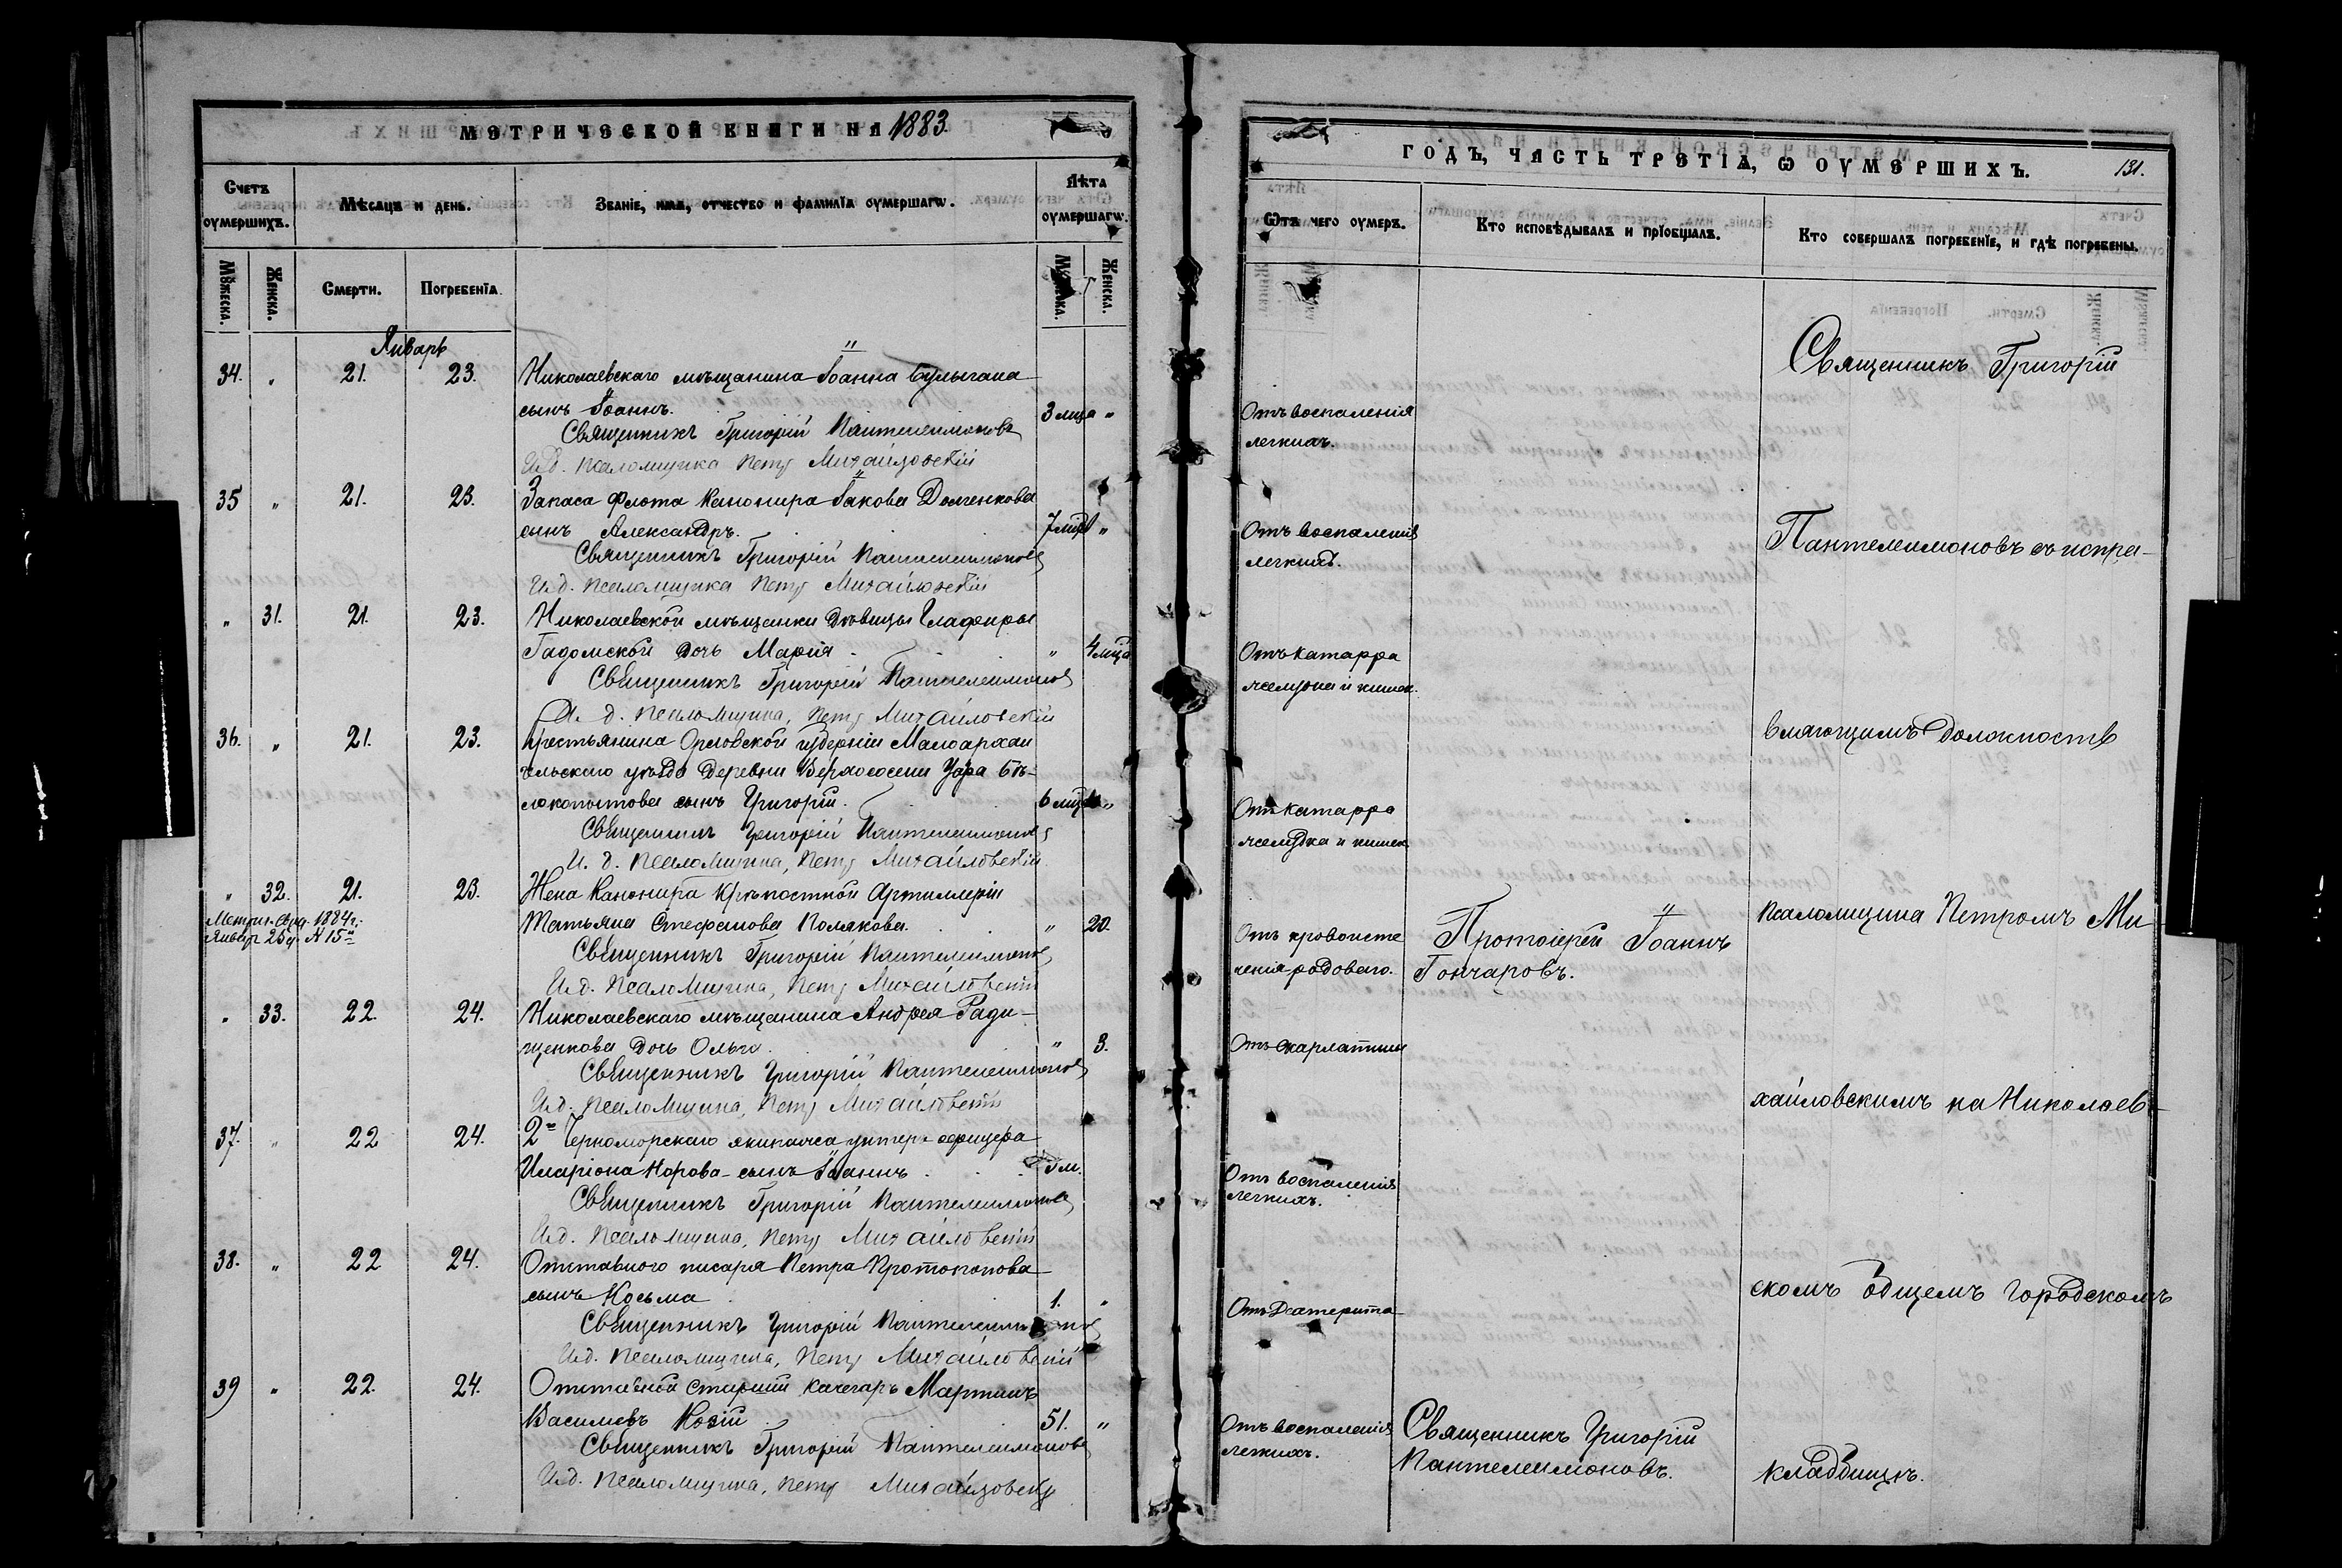 МЕТРИЧЕСКОЙ КНИГИ НА 1883.
Счетъ оумершихъ.
Мѣсяцъ и день.
Званїе, имѧ, отчество и фамилїѧ оумершагѡ.
Лѣта оумершагѡ.
Мꙋжеска.
Женска.
Смерти.
Погребенїѧ.
Мꙋжеска.
Женска.
Январь
34. " 21. 23. Николаевскаго мѣщанина Іоанна Булыгана
сынъ Іоаннъ. 3 мца "
Священникъ Григорій Пантелеимоновъ
И.д. псаломщика Петръ Михайловскій
35 " 21. 23. Запаса флота канонира Іакова Долженкова
сынъ Александръ. 7 мцев "
Священникъ Григорій Пантелеимоновъ
И.д. псаломщика Петръ Михайловскій
" 31. 21. 23. Николаевской мѣщанки дѣвицы Глафиры
Гадомской дочь Марія. " 4 мца
Священникъ Григорій Пантелеимоновъ
И. д. псаломщика, Петръ Михайловскій
36. " 21. 23. Крестьянина Орловской губерніи Малоархан
гельскаго уѣзда деревни Верхососени Уара Бѣ-
локопытова сынъ Григорій. 6 мцев "
Священникъ Григорій Пантелеимоновъ
И. д. псаломщика, Петръ Михайловскій
" 32. 21. 23. Жена канонира крѣпостной Артиллеріи
Метрич. свид. 1884 г. Татьяна Стефанова Полякова. " 20.
Январ 25 д. № 15й
Священникъ Григорій Пантелеимоновъ
И.д. псаломщика, Петръ Михайловскій
" 33. 22. 24. Николаевскаго мѣщанина Андрея Ради-
щенкова дочь Ольга. " 3.
Священникъ Григорій Пантелеимоновъ
И.д. псаломщика, Петръ Михайловскій
37. " 22 24. 2го Черноморскаго экипажа унтеръ офицера
Иларіона Норова сынъ Іоаннъ м.
Священникъ Григорій Пантелеимоновъ
И.д. псаломщика, Петръ Михайловскій
38. " 22 24. Отставного писаря Петра Протопопова
сынъ Косьма 1. "
Священникъ Григорій Пантелеимоновъ
И.д. псаломщика, Петръ Михайловскій
39 " 22. 24. Отставной старшій кочегаръ Мартинъ
Василіевъ Козій 51. "
Священникъ Григорій Пантелеимоновъ
И.д. псаломщика, Петръ Михайловскій
ГОДЪ, ЧАСТЬ ТРЕТІѦ, Ѡ ОУМЕРШИХЪ. 131.
Ѿтъ чего оумеръ.
Кто исповѣдывалъ и прїобщалъ.
Кто совершалъ погребенїе, и гдѣ погребены.
Священникъ Григорій
Отъ воспаленія
легкихъ.
Отъ воспаленія
легкихъ.
Пантелеимоновъ съ испра-
Отъ катарра
желудка и кишек.
вляющимъ должность
Отъ катарра
желудка и кишек
псаломщика Петромъ Ми
Отъ кровоисте
ченія родоваго.
Протоіерей Іоаннъ
Гончаровъ.
Отъ скарлатины
хайловскимъ на Николаев-
Отъ воспаленія
легкихъ.
скомъ общемъ городскомъ
Отъ дифтерита
Отъ воспаленія
легкихъ.
Священникъ Григорій
Пантелеимоновъ.
кладбищѣ.